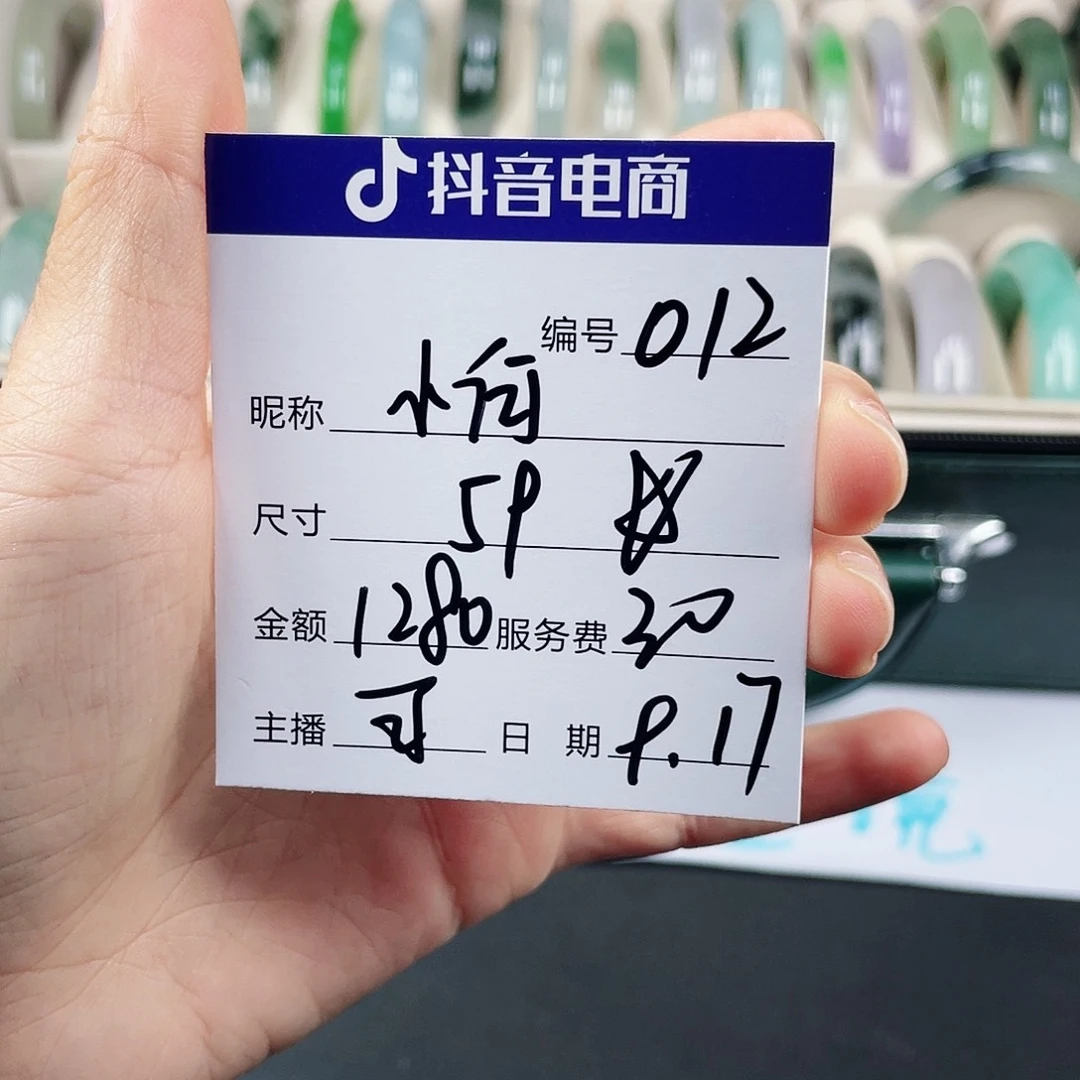 抖音电商
编号 012
昵称
尺寸 59
金额 1280 服务费 30
主播 可 日 期 9.17